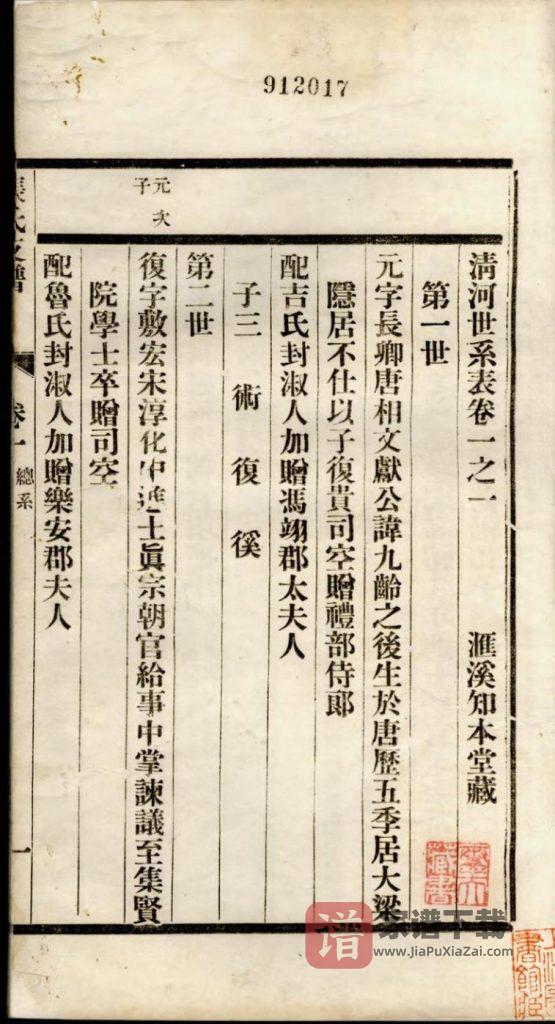 912017
元 次
子
清河世系表卷一之一 滙溪知本堂藏
第一世
元字長卿唐相文獻公諱九齡之後生於唐歷五季居大梁
隱居不仕以子復貴司空贈禮部侍郎
配吉氏封淑人加贈馮翊郡太夫人
子三 術 復 徯
第二世
復字敷宏宋淳化中進士眞宗朝官給事中掌諫議至集賢
院學士卒贈司空
配魯氏封淑人加贈樂安郡夫人
張氏支譜
卷一 總系
一
藏書
谱 家谱下载
www.JiaPuXiaZai.com